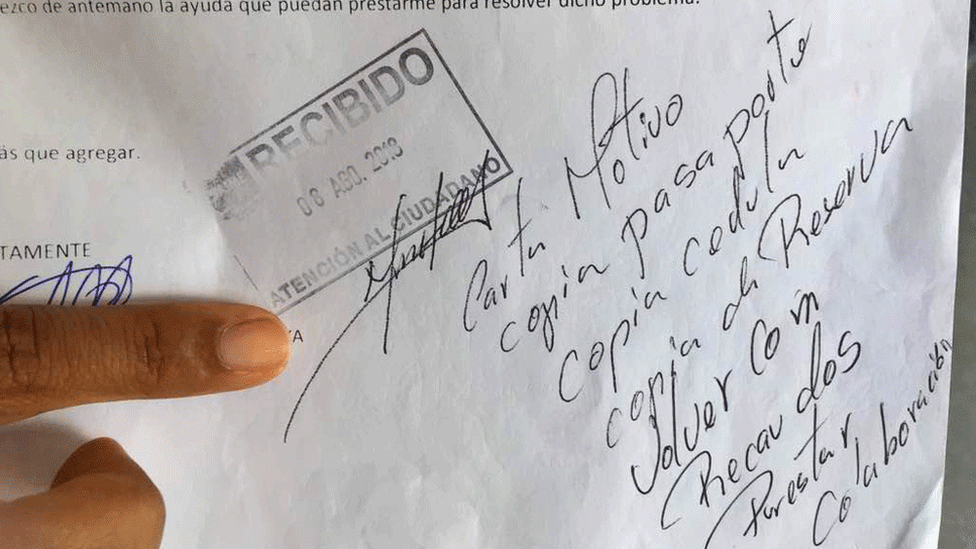 ezco de antemano la ayuda que puedan prestarme para resolver dicho problema.
ás que agregar.
TAMENTE
A
RECIBIDO
08 AGO. 2018
ATENCIÓN AL CIUDADANO
Carta Motivo
copia pasaporte
copia cedula
copia de Reserva
Volver Con
Recaudos
Prestar
Colaboración